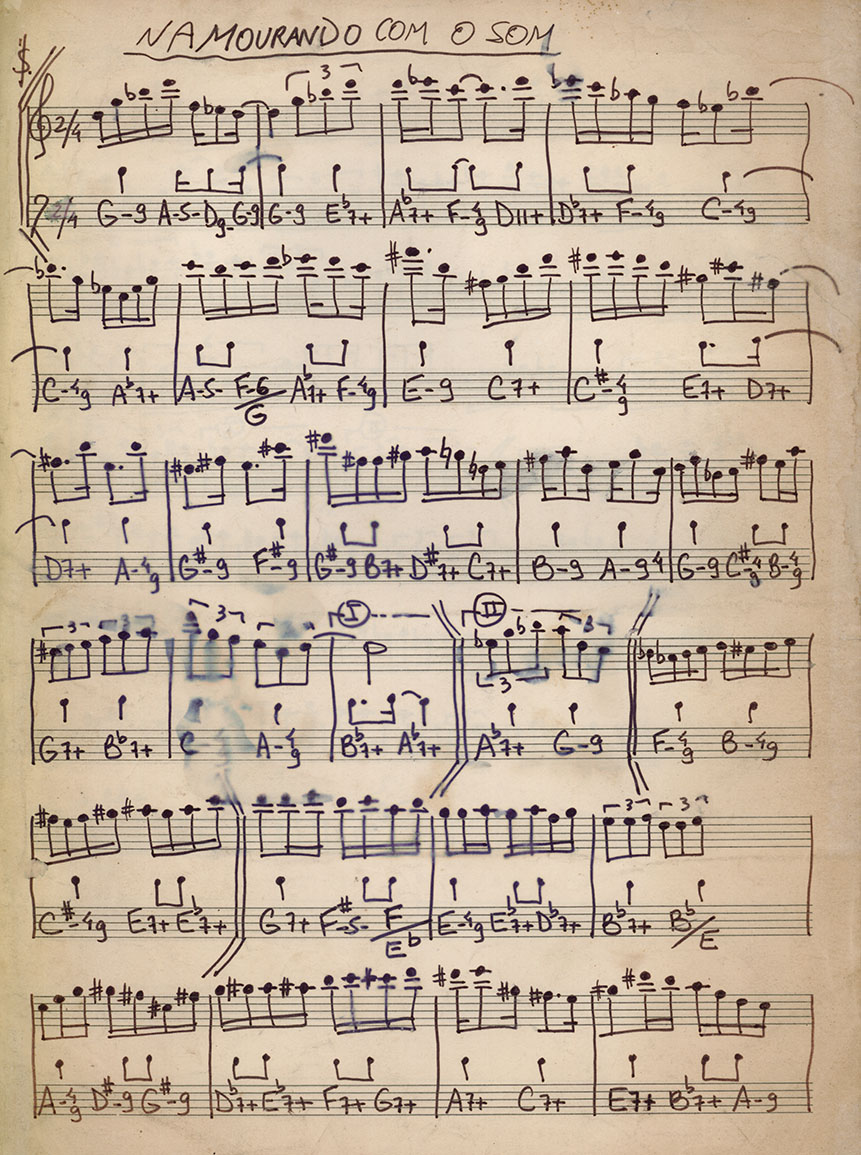 NAMOURANDO COM O SOM
3
2/4
2/4 G-9 A-5- D9- G-9 G-9 E♭7+ A♭7+ F-4/9 D11+ D♭7+ F-4/9 C-4/9
C-4/9 A♭7+ A-5- F-6/G A♭7+ F-4/9 E-9 C7+ C#-4/9 E7+ D7+
D7+ A-4/9 G#-9 F#-9 G#-9 B7+ D#7+ C7+ B-9 A-9 4 G-9 C#-4/9 B-4/9
3 3 3 3 I II 3
3
G7+ B♭7+ C- A-4/9 B♭7+ A♭7+ A♭7+ G-9 F-4/9 B-4/9
3 3
C#-4/9 E7+ E♭7+ G7+ F#-5- F/E♭ E-4/9 E♭7+ D♭7+ B♭7+ B♭/E
A-4/9 D#-9 G#-9 D♭7+ E♭7+ F7+ G7+ A7+ C7+ E7+ B♭7+ A-9